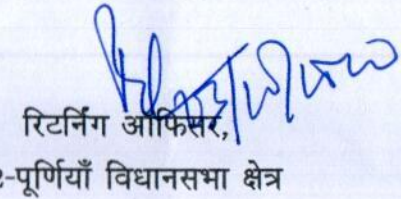 रिटर्निंग ऑफिसर,
२-पूर्णियाँ विधानसभा क्षेत्र